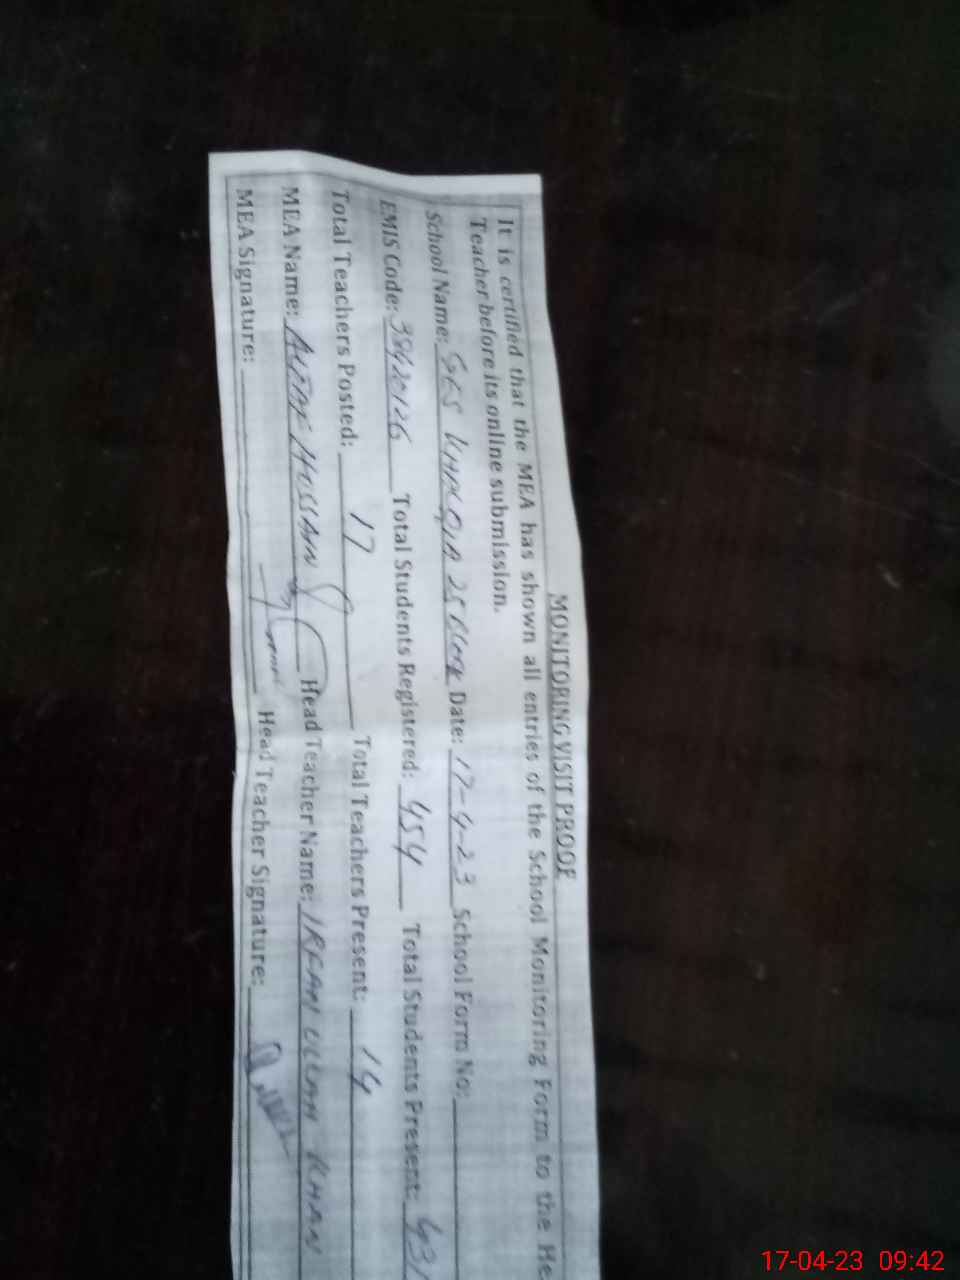 MONITORING VISIT PROOF
It is certified that the MEA has shown all entries of the School Monitoring Form to the He
Teacher before its online submission.
School Name: GES 25 Date: 17-4-23 School Form No:
EMIS Code: 38420126 Total Students Registered: 454 Total Students Present: 431
Total Teachers Posted: 17 Total Teachers Present: 14
MEA Name: ALTAF HUSSAIN Head Teacher Name: IRFAN ULLAH KHAN
MEA Signature: Head Teacher Signature:
17-04-23 09:42